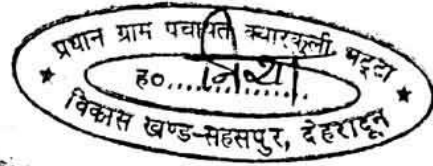 प्रधान ग्राम पंचायत क्यारकुली भट्टा
ह०..............
विकास खण्ड-सहसपुर, देहरादून